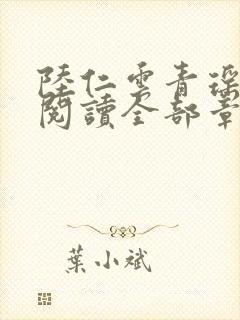 陸仁雲青瑶
閱讀全部章
葉小斌